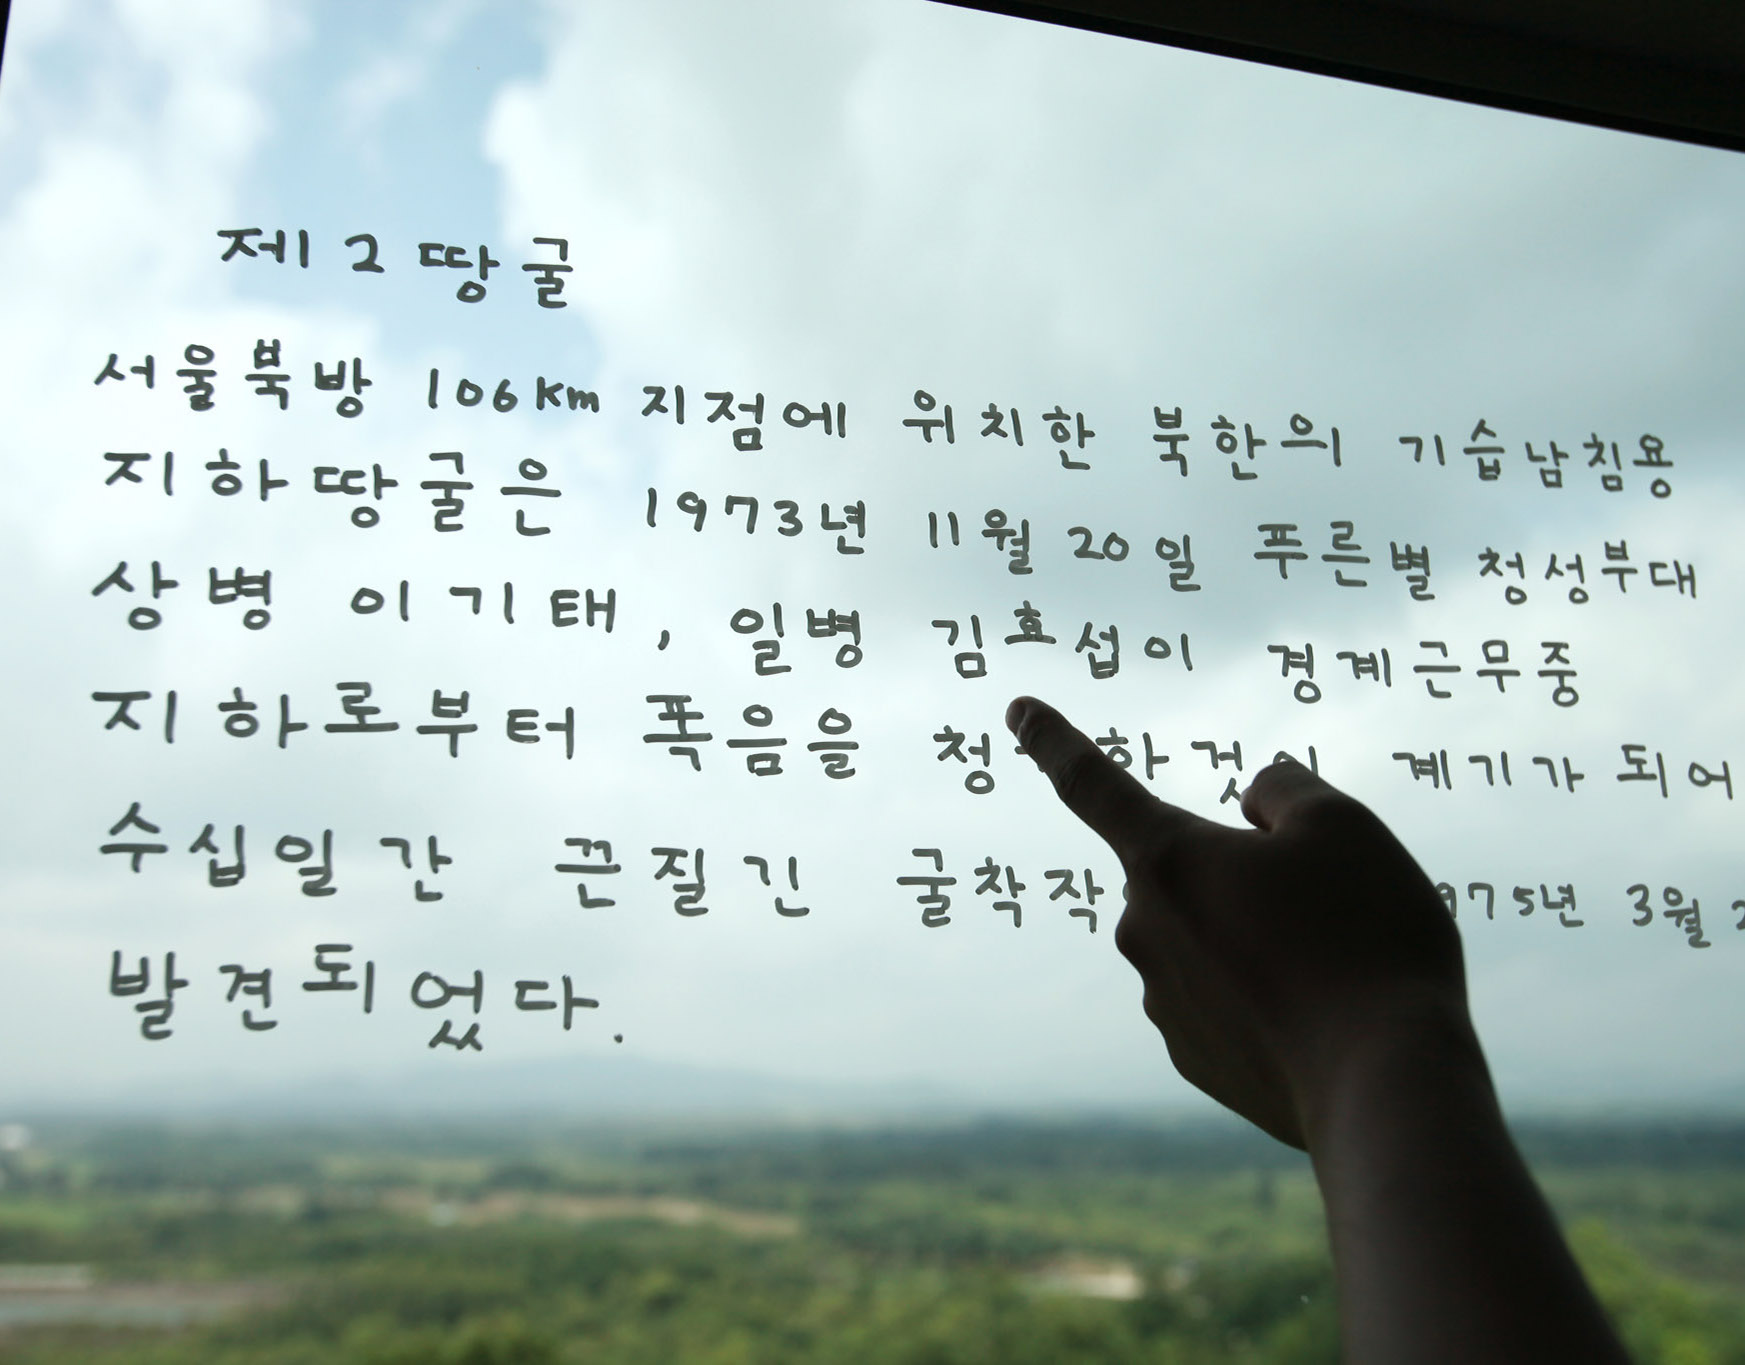 제2땅굴
서울북방 106Km 지점에 위치한 북한의 기습남침용
지하땅굴은 1973년 11월 20일 푸른별 청성부대
상병 이기태, 일병 김효섭이 경계근무중
지하로부터 폭음을 계기가 되어
수십일간 끈질긴 3월
발견되었다.